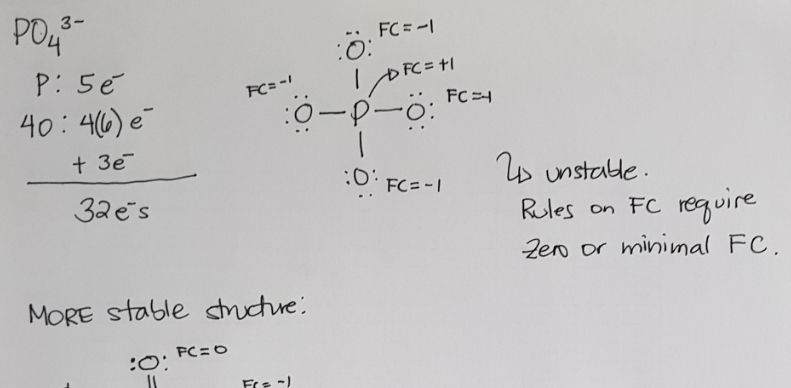 PO₄³⁻
P: 5e⁻
4O: 4(6)e⁻
+ 3e⁻
32e⁻s
:Ö: FC=-1
FC=+1
FC=-1
:Ö—P—Ö: FC=-1
:O: FC=-1
↳ unstable.
Rules on FC require
zero or minimal FC.
MORE stable structure:
:O: FC=0
FC=-1